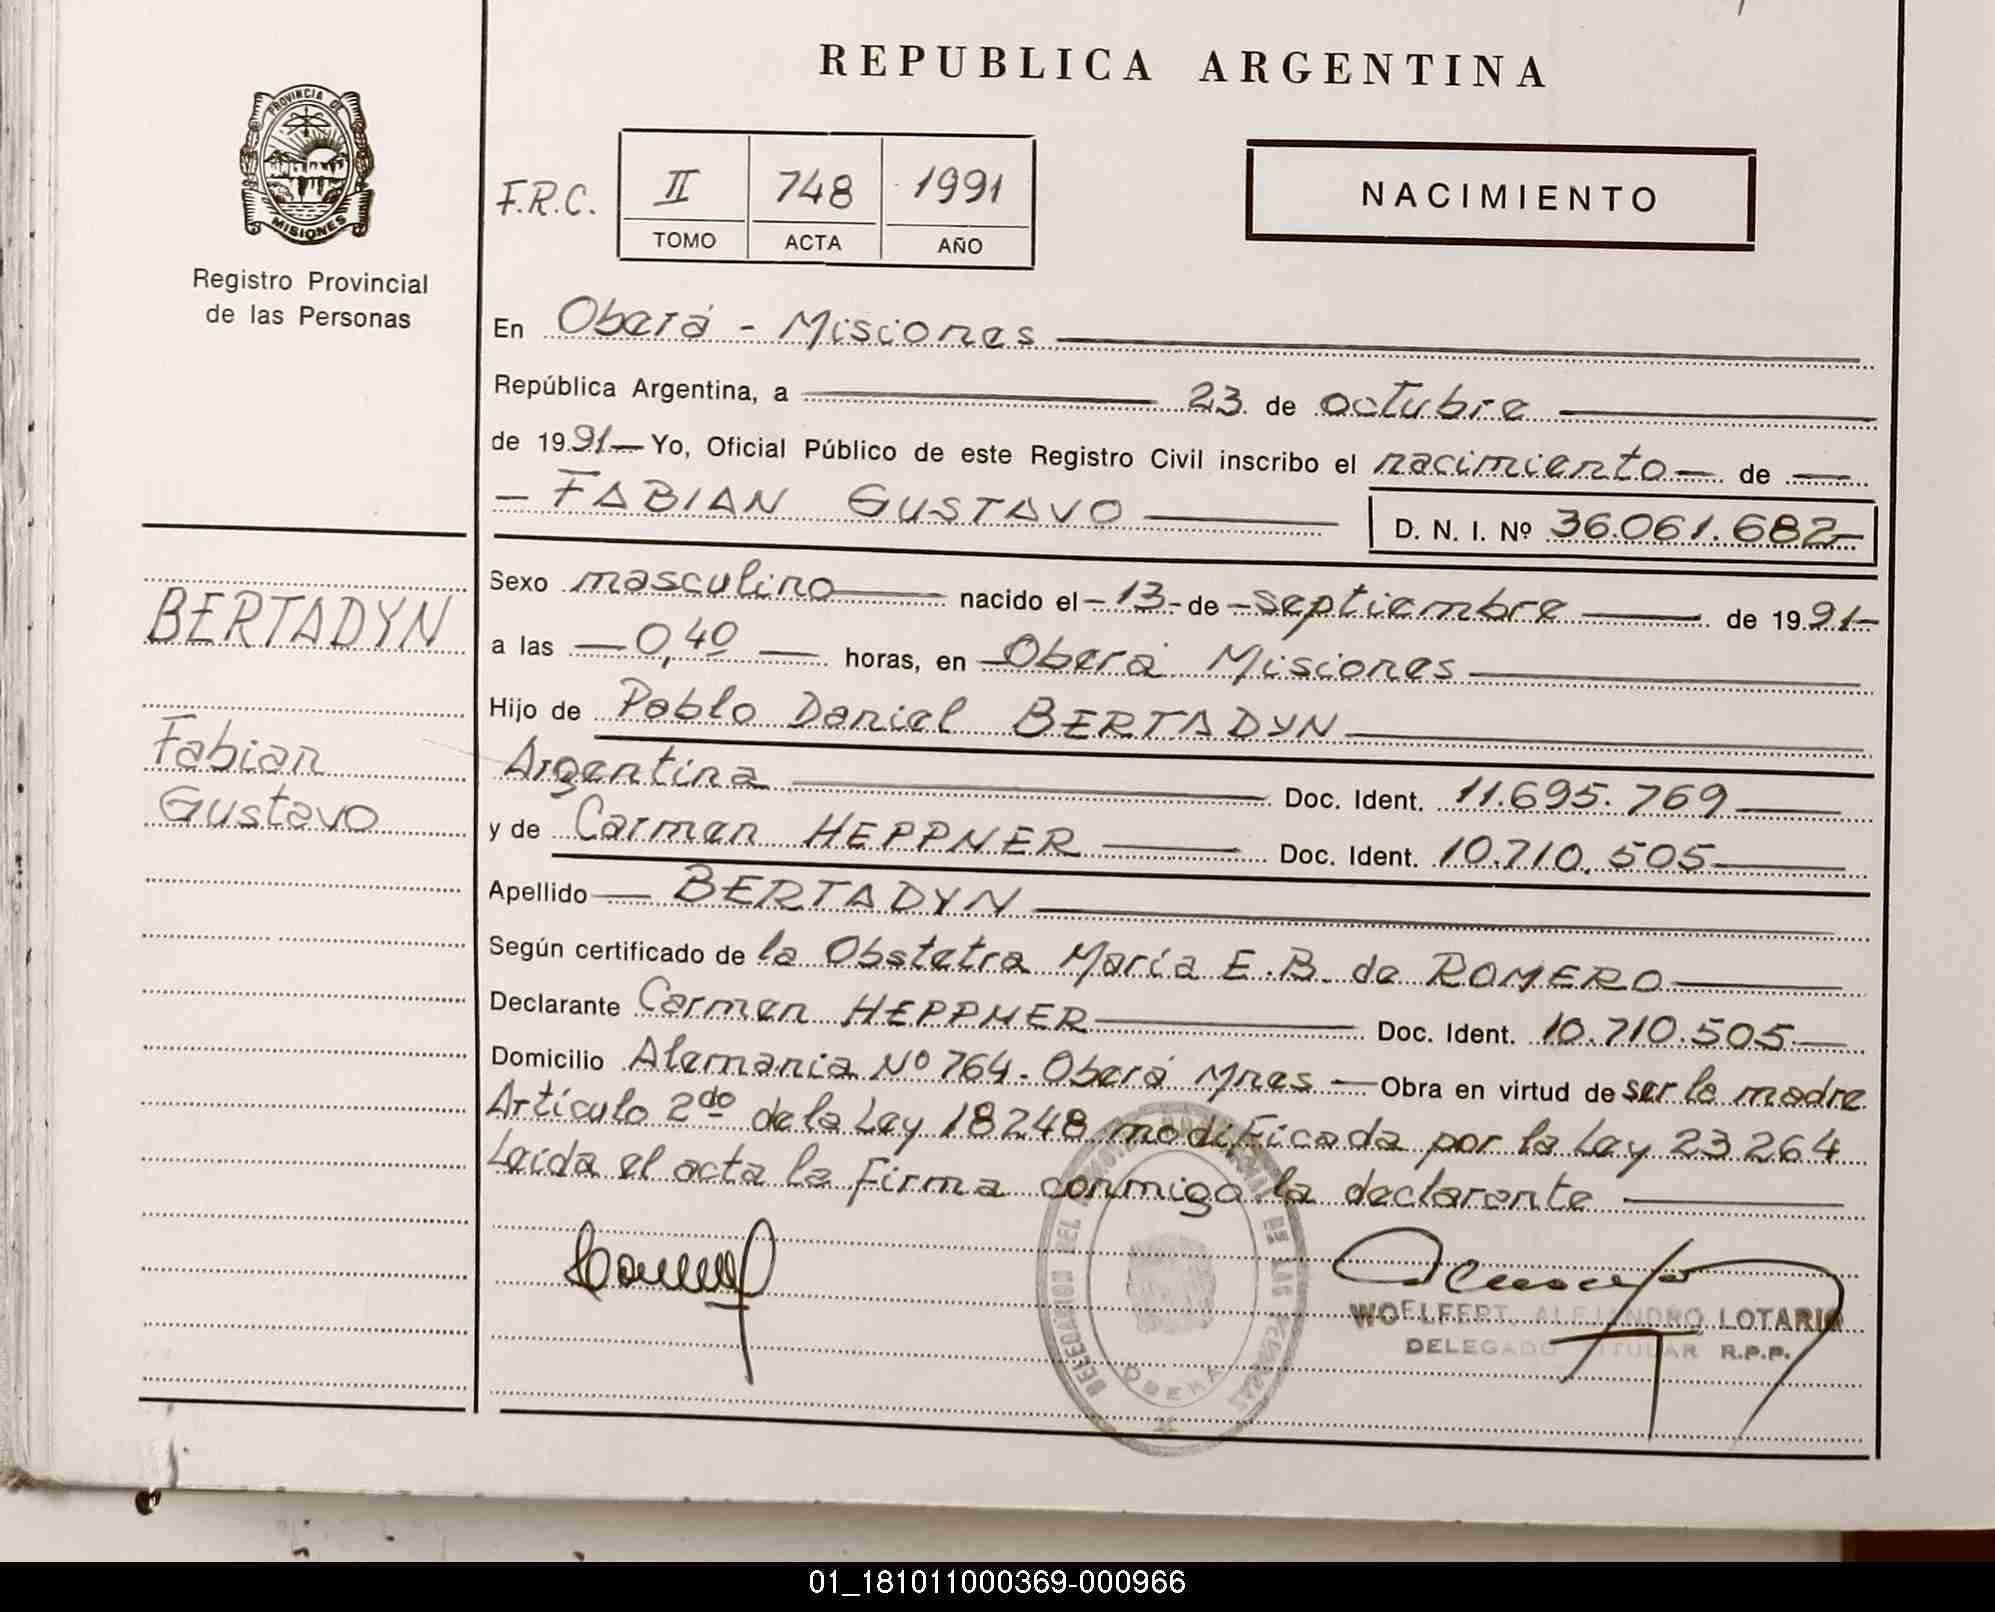 REPUBLICA ARGENTINA
PROVINCIA DE
MISIONES
Registro Provincial
de las Personas
F.R.C. II 748 1991
TOMO ACTA AÑO
NACIMIENTO
En Oberá - Misiones
República Argentina, a 23 de octubre
de 1991- Yo, Oficial Público de este Registro Civil inscribo el nacimiento de
FABIAN GUSTAVO D. N. I. Nº 36.061.682-
BERTADYN
Fabian
Gustavo
Sexo masculino nacido el - 13 - de - septiembre de 1991-
a las 0,40 horas, en Oberá Misiones
Hijo de Pablo Daniel BERTADYN
Argentina Doc. Ident. 11.695.769
y de Carmen HEPPNER Doc. Ident. 10.710.505
Apellido BERTADYN
Según certificado de la Obstetra María E.B. de ROMERO
Declarante Carmen HEPPNER Doc. Ident. 10.710.505
Domicilio Alemania Nº 764 - Oberá Mnes - Obra en virtud de ser la madre
Artículo 2do de la Ley 18248 modificada por la Ley 23264
Leída el acta la firma conmigo la declarante
WOELFERT, ALEJANDRO LOTARIO
DELEGADO TITULAR R.P.P.
DELEGACION DEL DE LAS
OBERA
01_181011000369-000966